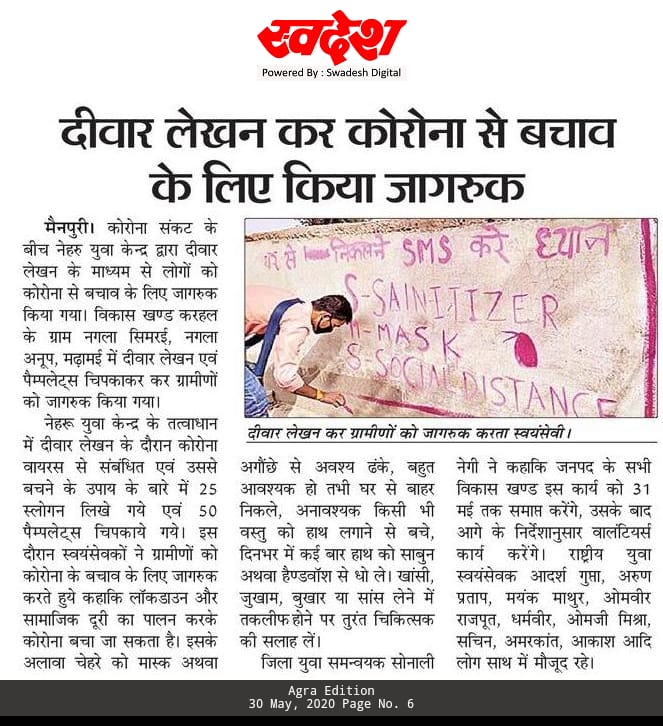 स्वदेश
Powered By : Swadesh Digital
दीवार लेखन कर कोरोना से बचाव
के लिए किया जागरुक
मैनपुरी। कोरोना संकट के
बीच नेहरु युवा केन्द्र द्वारा दीवार
लेखन के माध्यम से लोगों को
कोरोना से बचाव के लिए जागरुक
किया गया। विकास खण्ड करहल
के ग्राम नगला सिमरई, नगला
अनूप, मढ़ामई में दीवार लेखन एवं
पैम्पलेट्स चिपकाकर कर ग्रामीणों
को जागरुक किया गया।
नेहरू युवा केन्द्र के तत्वाधान
में दीवार लेखन के दौरान कोरोना
वायरस से संबंधित एवं उससे
बचने के उपाय के बारे में 25
स्लोगन लिखे गये एवं 50
पैम्पलेट्स चिपकाये गये। इस
दौरान स्वयंसेवकों ने ग्रामीणों को
कोरोना के बचाव के लिए जागरुक
करते हुये कहाकि लॉकडाउन और
सामाजिक दूरी का पालन करके
कोरोना बचा जा सकता है। इसके
अलावा चेहरे को मास्क अथवा
घर से निकलने SMS करे ध्यान
S-SAINITIZER
M-MASK
S-SOCIAL DISTANCE
दीवार लेखन कर ग्रामीणों को जागरुक करता स्वयंसेवी।
अगौंछे से अवश्य ढंके, बहुत
आवश्यक हो तभी घर से बाहर
निकले, अनावश्यक किसी भी
वस्तु को हाथ लगाने से बचे,
दिनभर में कई बार हाथ को साबुन
अथवा हैण्डवॉश से धो ले। खांसी,
जुखाम, बुखार या सांस लेने में
तकलीफ होने पर तुरंत चिकित्सक
की सलाह लें।
जिला युवा समन्वयक सोनाली
नेगी ने कहाकि जनपद के सभी
विकास खण्ड इस कार्य को 31
मई तक समाप्त करेंगे, उसके बाद
आगे के निर्देशानुसार वालंटियर्स
कार्य करेंगे। राष्ट्रीय युवा
स्वयंसेवक आदर्श गुप्ता, अरुण
प्रताप, मयंक माथुर, ओमवीर
राजपूत, धर्मवीर, ओमजी मिश्रा,
सचिन, अमरकांत, आकाश आदि
लोग साथ में मौजूद रहे।
Agra Edition
30 May, 2020 Page No. 6